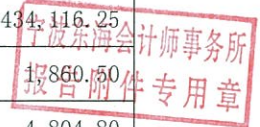 434,116.25
宁波东海会计师事务所
1,860.50
报告附件专用章
4,804.80